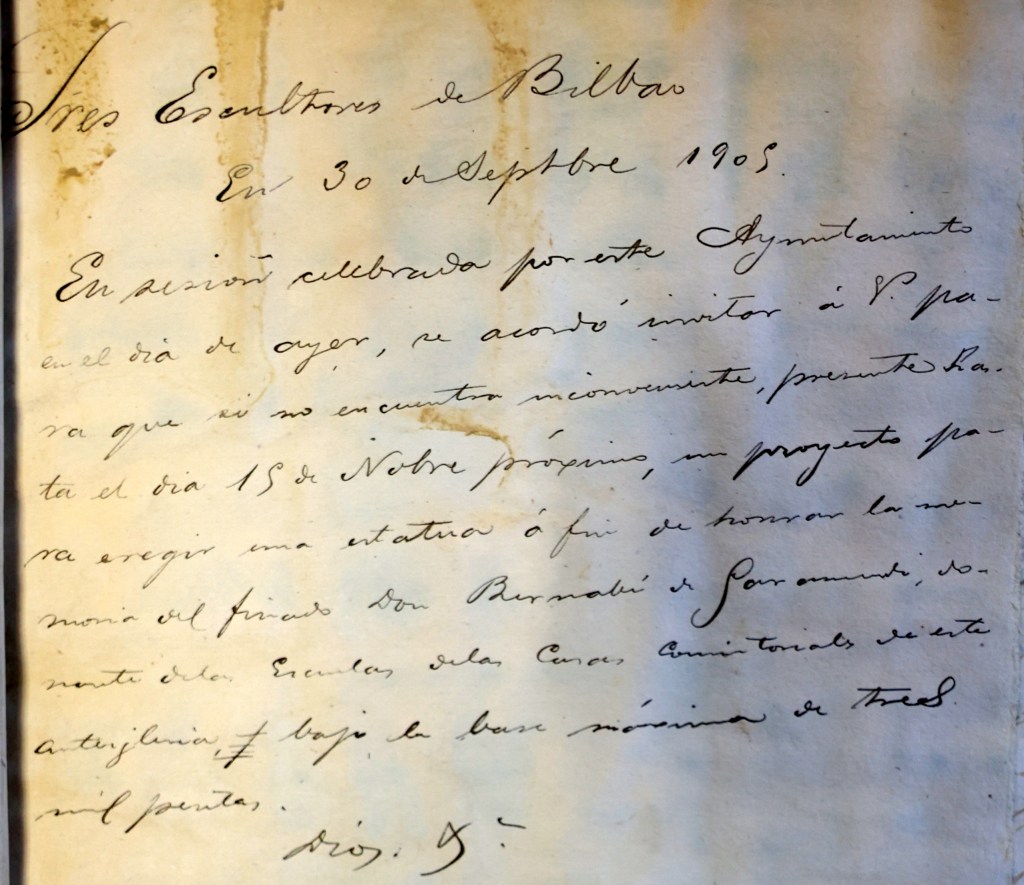 Tres Escultores de Bilbao
En 30 de Septbre 1905.
En sesión celebrada por este Ayuntamiento
en el dia de ayer, se acordó invitar á V. pa-
ra que si no encuentra inconveniente, presente has-
ta el dia 15 de Nobre próximo, un proyecto pa-
ra eregir una estatua á fin de honrar la me-
moria del finado Don Bernabé de Garamendi, do-
nante delas Escuelas delas Casas Consistoriales de este
anteiglesia, bajo la base máxima de tres
mil pesetas.
Dios. &